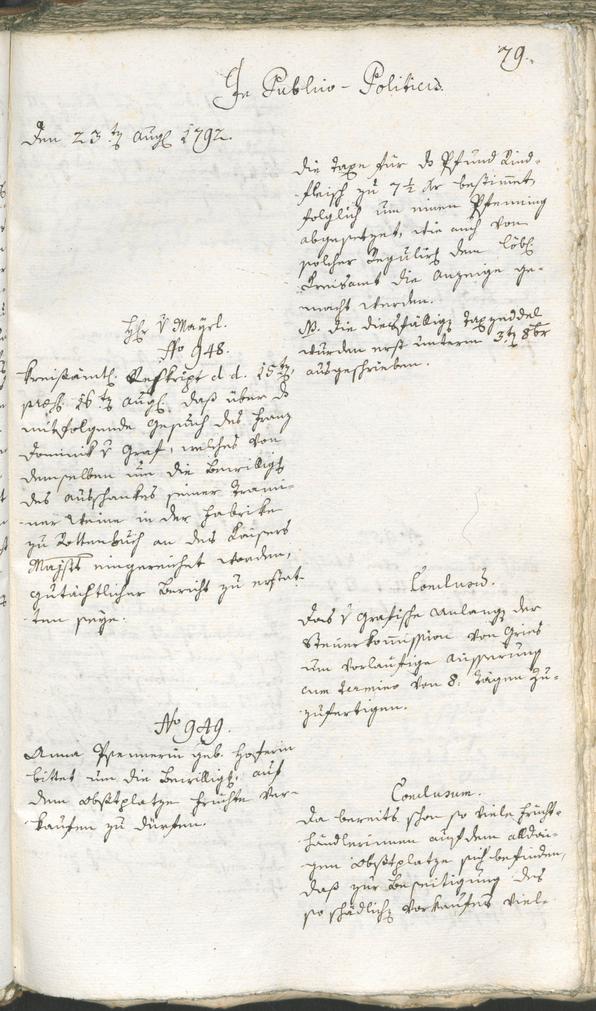 79.
In Publico-Politicis.
Den 23ten Aug. 1792.
die Taxe für das Pfund Rind-
fleisch zu 7½ kr bestimmet,
folglich um einen Pfenning
abgesetzet, wie auch von
solcher Regulirung dem löbl.
Kreisamt die Anzeige ge-
macht werden.
NB. die diesfälligen Taxzeddel
wurden erst unterm 3ten 8br
ausgeschrieben.
Hr v Mayrl.
No 948.
Kreisämtl. Reskript d. d. 15ten,
praes. 16ten Aug., daß über das
mitfolgende Gesuch des Franz
Dominik v Graf, welches von
demselben um die Bewilligung
des Ausschankes seiner Trami-
ner Weine in der Fabrike
zu Rottenbuch an des Kaisers
Majestt eingereichet worden,
gutächtlicher Bericht zu erstat-
ten seye.
Conclusum.
Das v Grafische Anlangen der
Steuerkommission von Gries
um vorläufige Äusserung
cum termino von 8. Tagen zu-
zufertigen.
No 949.
Anna geb. Hoferin
bittet um die Bewilligung, auf
dem Obstplatze Früchte ver-
kaufen zu dürfen.
Conclusum.
Da bereits schon so viele Frücht-
händlerinnen auf dem alldasi-
gen Obstplatze sich befinden,
daß zur Beseitigung des
so schädlichen Vorkaufens viel-